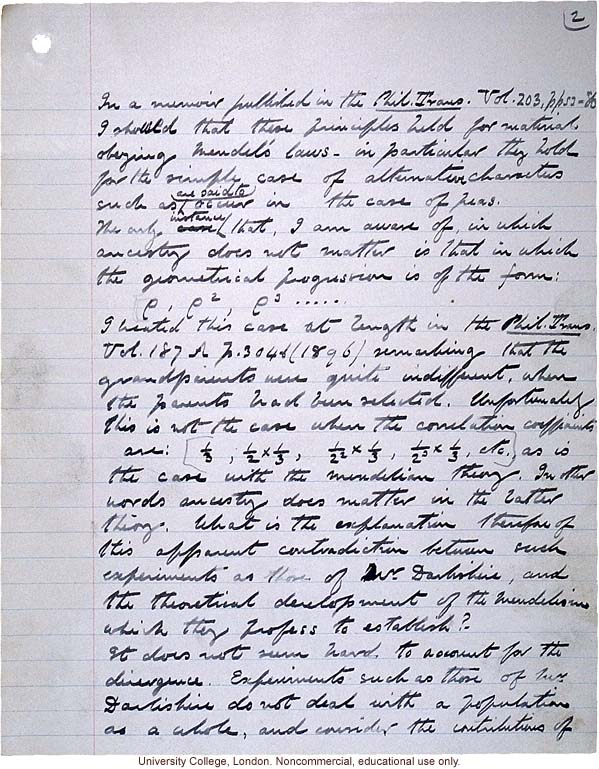 2
In a memoir published in the Phil. Trans. Vol. 203, pp 53-86
I showed that these principles held for material
obeying Mendel's laws - in particular they hold
for the simple case of alternative characters
such as are said to occur in the case of peas.
The only case instance that, I am aware of, in which
ancestry does not matter is that in which
the geometrical progression is of the form:
ρ, ρ², ρ³ .....
I treated this case at length in the Phil. Trans.
Vol. 187 A p. 304 (1896) remarking that the
grandparents were quite indifferent, when
the parents had been selected. Unfortunately
this is not the case when the correlation coefficients
are: [1/3, 1/2 × 1/3, 1/2² × 1/3, 1/2³ × 1/3, etc.] as is
the case with the mendelian theory. In other
words ancestry does matter in the latter
theory. What is the explanation therefore of
this apparent contradiction between such
experiments as those of Mr. Darbishire, and
the theoretical development of the Mendelism
which they profess to establish?
It does not seem hard to account for the
divergence. Experiments such as those of Mr
Darbishire do not deal with a population
as a whole, and consider the contributions of
University College, London. Noncommercial, educational use only.